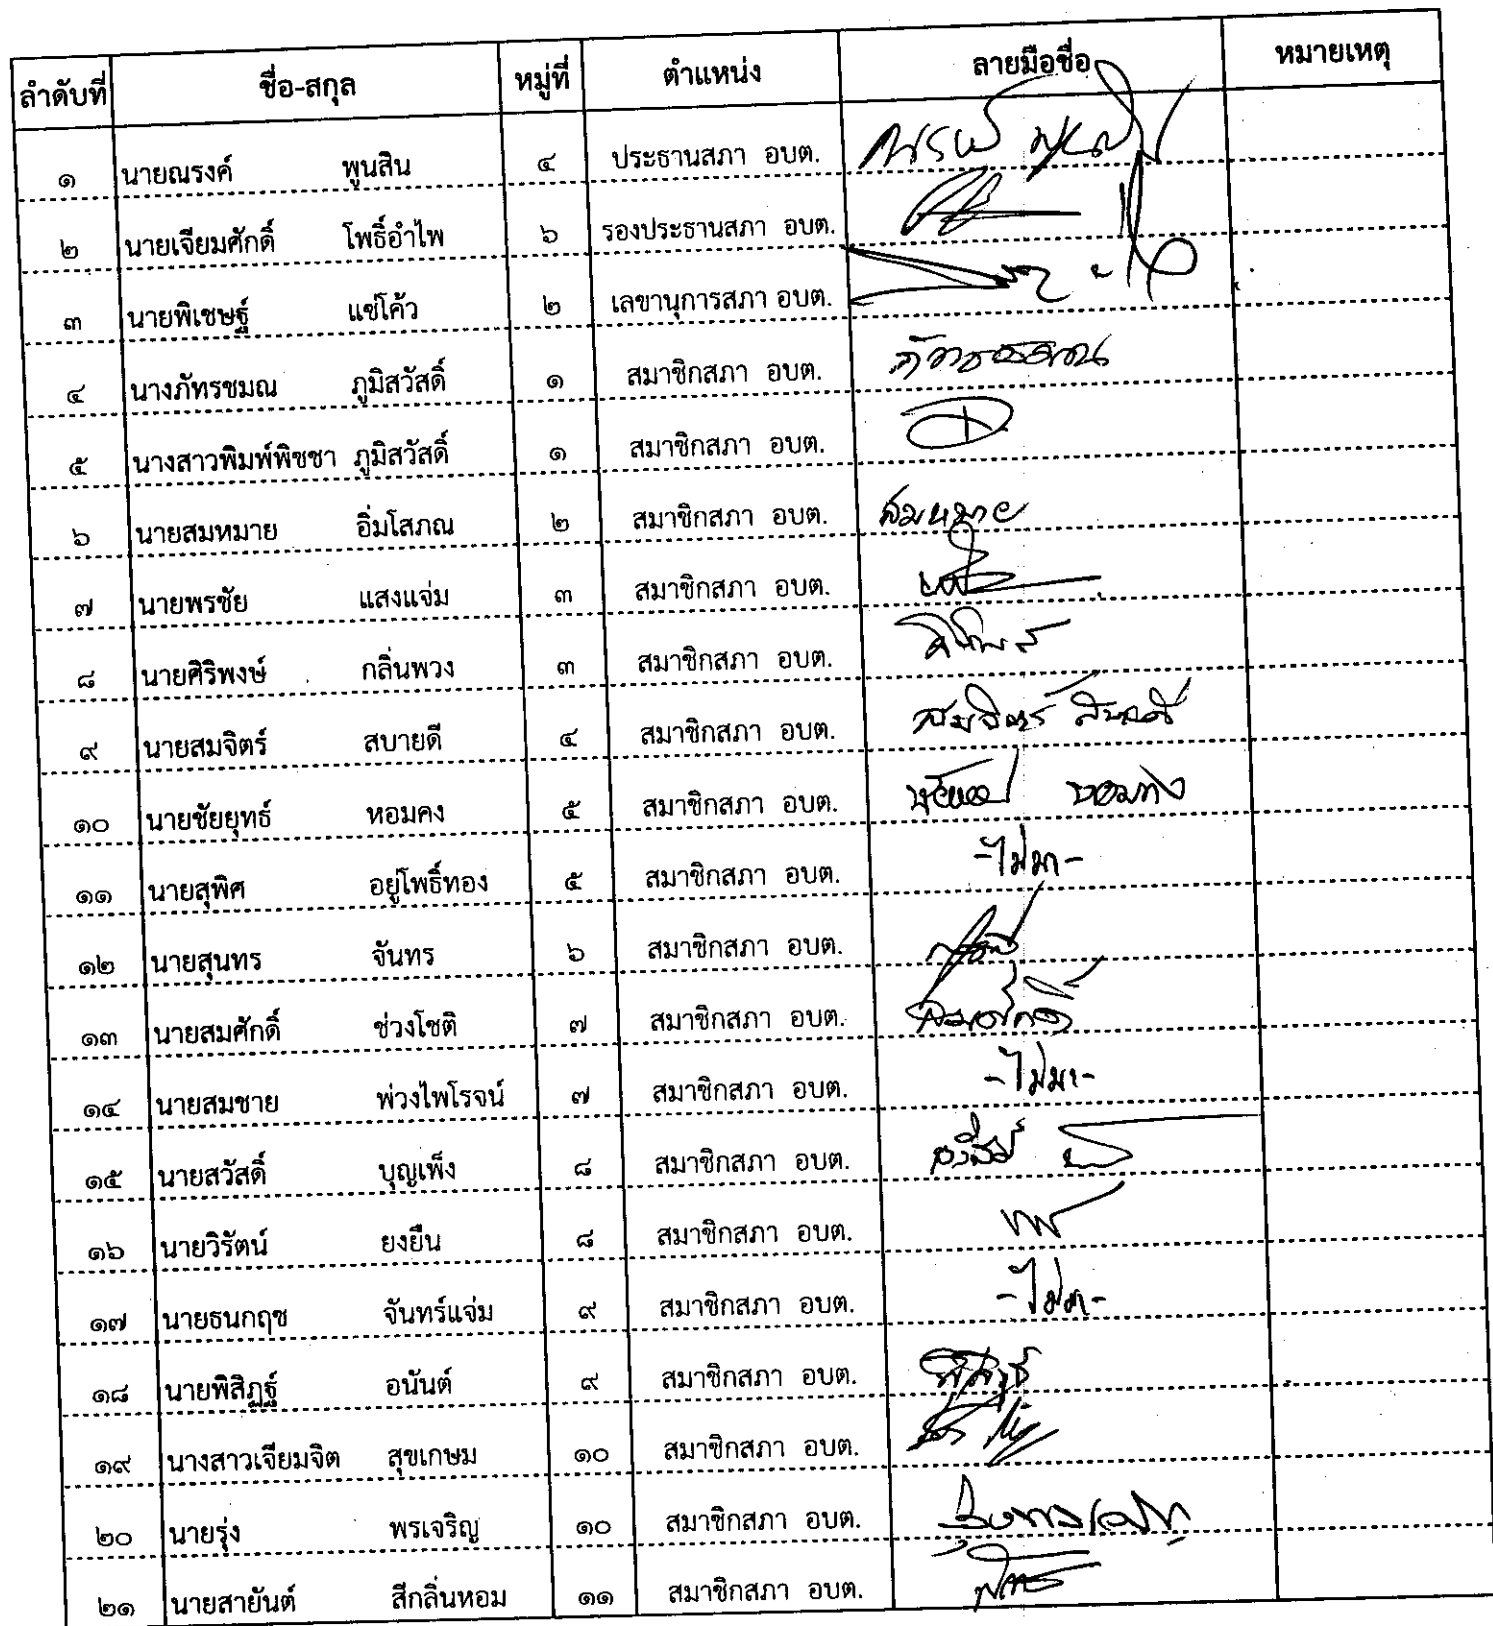 ลำดับที่ ชื่อ-สกุล หมู่ที่ ตำแหน่ง ลายมือชื่อ หมายเหตุ
๑ นายณรงค์ พูนสิน ๔ ประธานสภา อบต.
๒ นายเจียมศักดิ์ โพธิ์อำไพ ๖ รองประธานสภา อบต.
๓ นายพิเชษฐ์ แซ่โค้ว ๒ เลขานุการสภา อบต.
๔ นางภัทรชมณ ภูมิสวัสดิ์ ๑ สมาชิกสภา อบต.
๕ นางสาวพิมพ์พิชชา ภูมิสวัสดิ์ ๑ สมาชิกสภา อบต.
๖ นายสมหมาย อิ่มโสภณ ๒ สมาชิกสภา อบต. สมหมาย
๗ นายพรชัย แสงแจ่ม ๓ สมาชิกสภา อบต.
๘ นายศิริพงษ์ กลิ่นพวง ๓ สมาชิกสภา อบต.
๙ นายสมจิตร์ สบายดี ๔ สมาชิกสภา อบต. สมจิตร์ สบายดี
๑๐ นายชัยยุทธ์ หอมคง ๕ สมาชิกสภา อบต.
๑๑ นายสุพิศ อยู่โพธิ์ทอง ๕ สมาชิกสภา อบต. -ไม่มา-
๑๒ นายสุนทร จันทร ๖ สมาชิกสภา อบต.
๑๓ นายสมศักดิ์ ช่วงโชติ ๗ สมาชิกสภา อบต. สมศักดิ์
๑๔ นายสมชาย พ่วงไพโรจน์ ๗ สมาชิกสภา อบต. -ไม่มา-
๑๕ นายสวัสดิ์ บุญเพ็ง ๘ สมาชิกสภา อบต.
๑๖ นายวิรัตน์ ยงยืน ๘ สมาชิกสภา อบต.
๑๗ นายธนกฤช จันทร์แจ่ม ๙ สมาชิกสภา อบต. -ไม่มา-
๑๘ นายพิสิฏฐ์ อนันต์ ๙ สมาชิกสภา อบต.
๑๙ นางสาวเจียมจิต สุขเกษม ๑๐ สมาชิกสภา อบต.
๒๐ นายรุ่ง พรเจริญ ๑๐ สมาชิกสภา อบต.
๒๑ นายสายันต์ สีกลิ่นหอม ๑๑ สมาชิกสภา อบต.